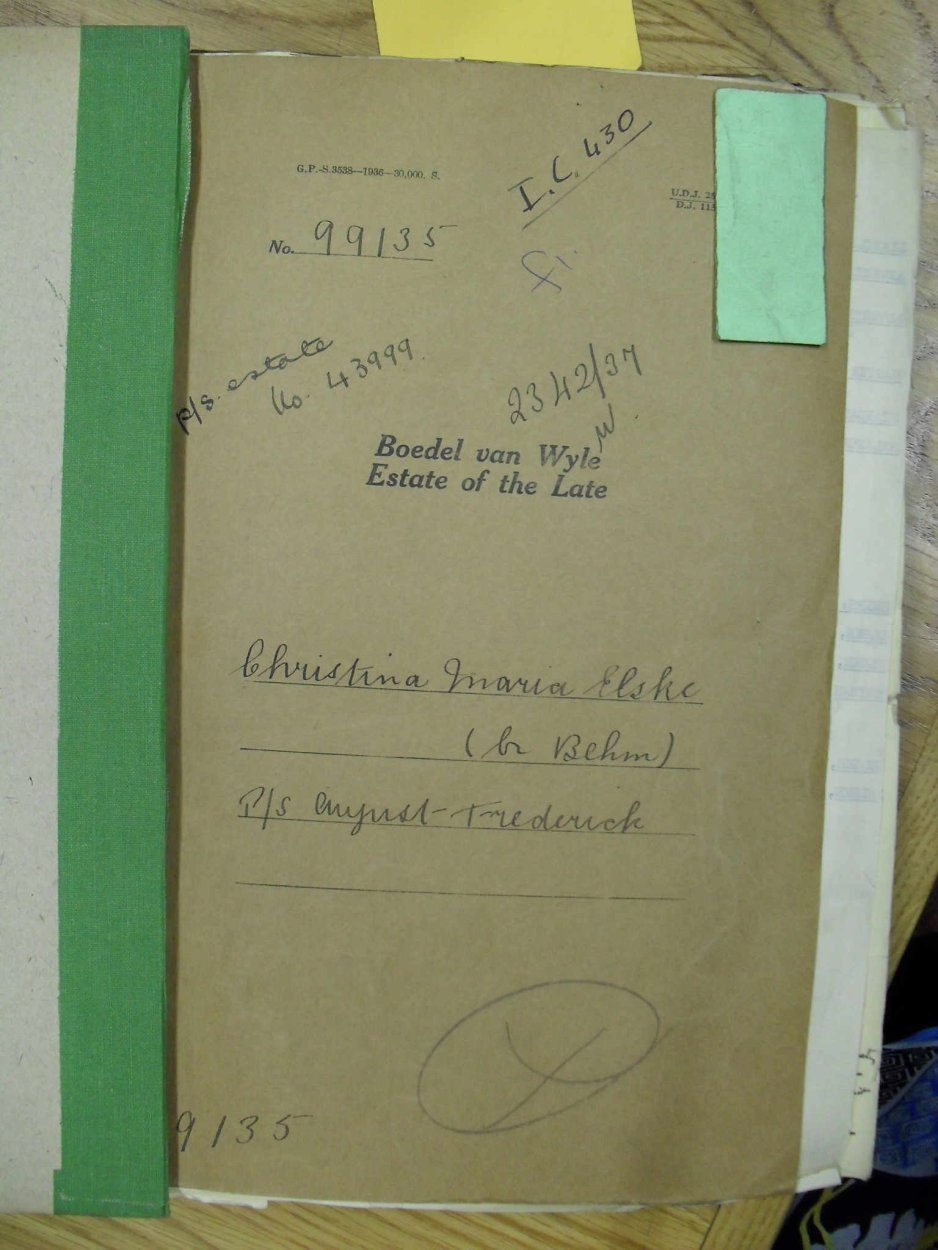 I.C. 430
G.P.-S.3538—1936—30,000. S.
U.D.J. 25
D.J. 115
No. 99135
p/s. estate
No. 43999.
2342/37
Boedel van Wyle
Estate of the Late
Christina Maria Elske
(br Behm)
P/s August Frederick
9135